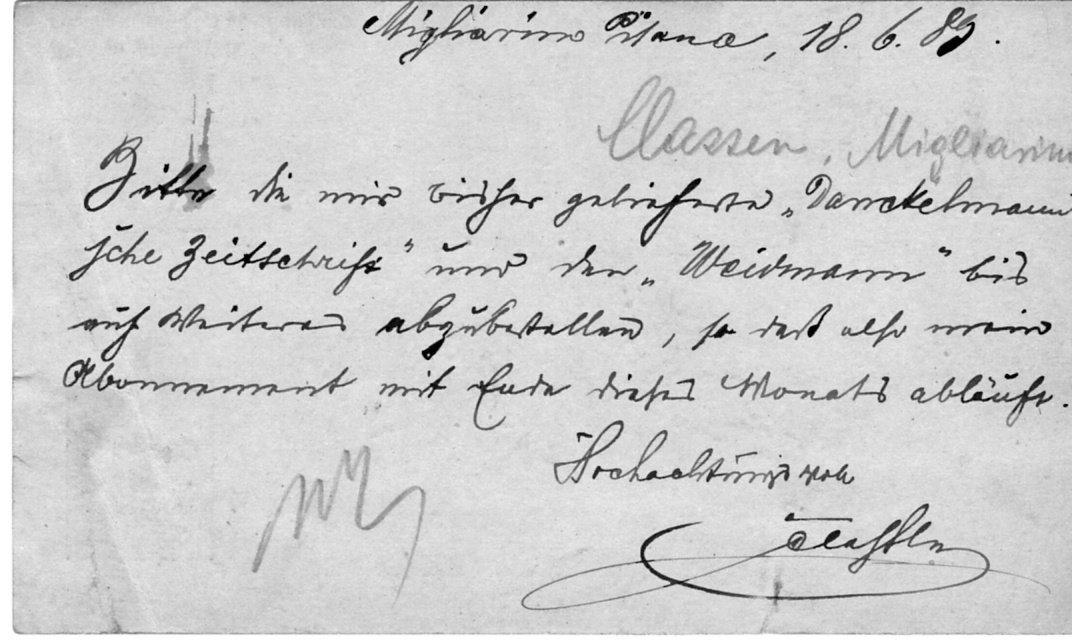 Migliarino Pisano, 18. 6. 89.
Classen, Migliarino
Bitte die mir bisher gelieferte „Danckelmann
sche Zeitschrift" und den „Weidmann" bis
auf Weiteres abzubestellen, so daß also mein
Abonnement mit Ende dieses Monats abläuft.
Hochachtungsvoll